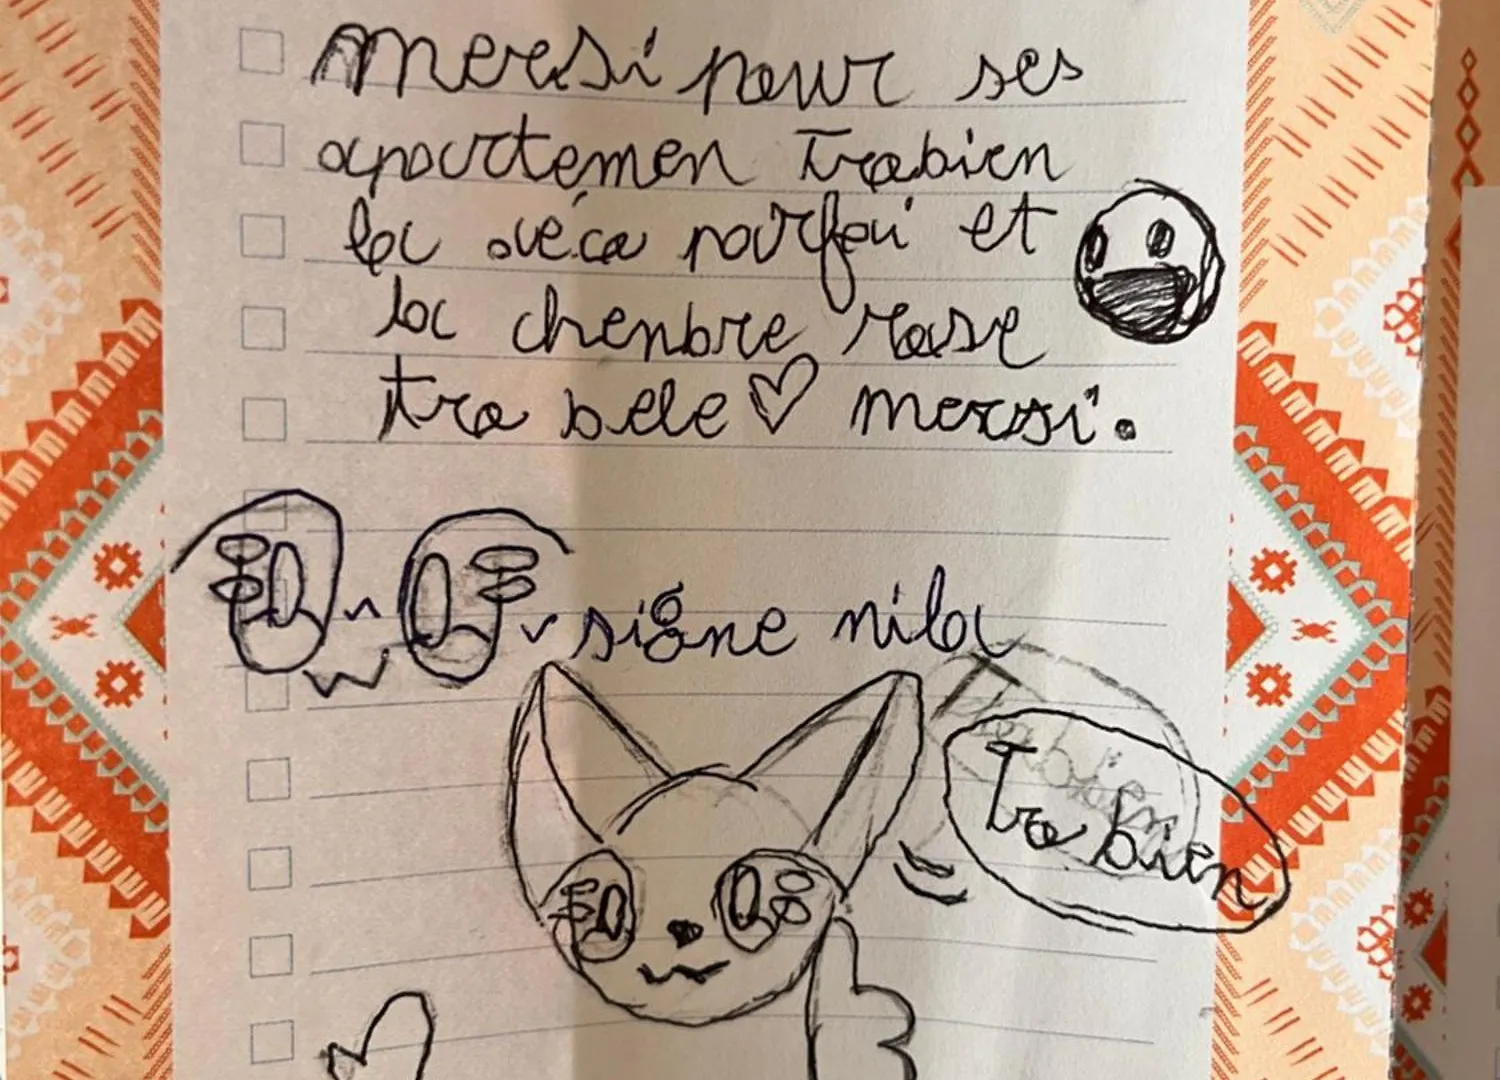 mersi pour ses
apartemen trabien
la déca parfai et
la chenbre rose
tra bele mersi.
signe nila
Tra bien